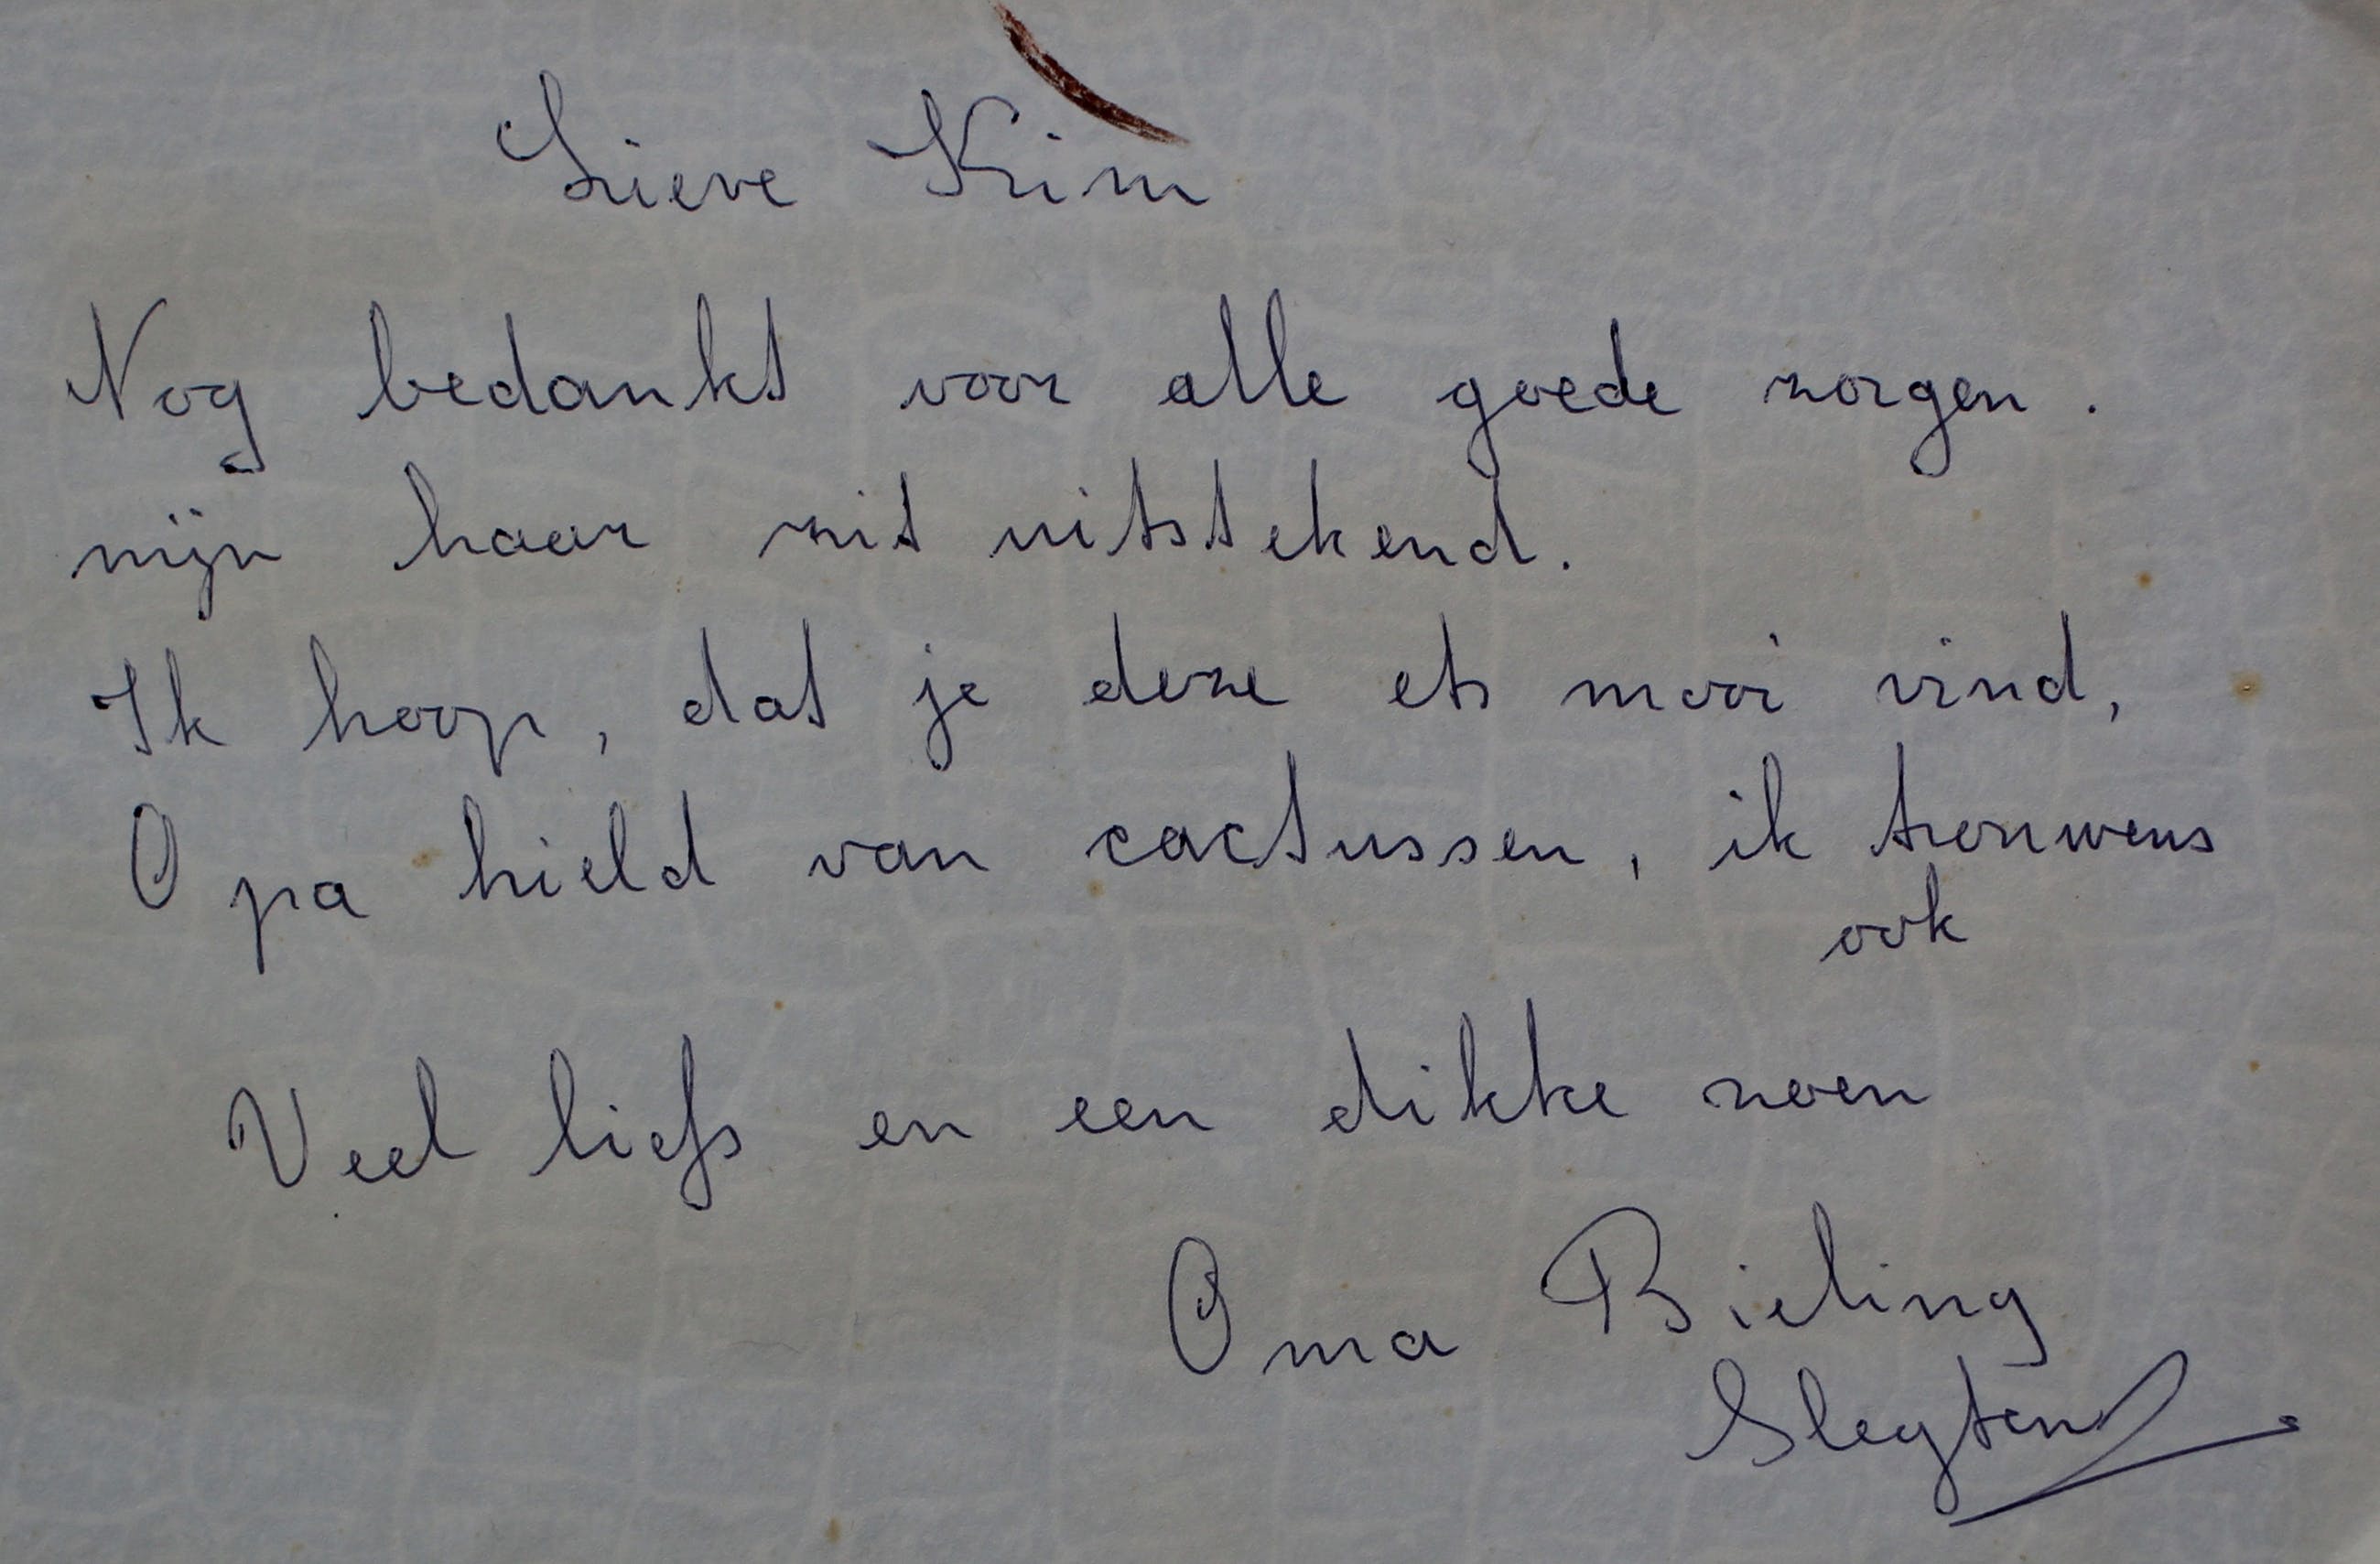 Lieve Kim
Nog bedankt voor alle goede zorgen.
mijn haar zit uitstekend.
Ik hoop, dat je deze ets mooi vind,
Opa hield van cactussen, ik trouwens
ook
Veel liefs en een dikke zoen
Oma Bieling
Slegten